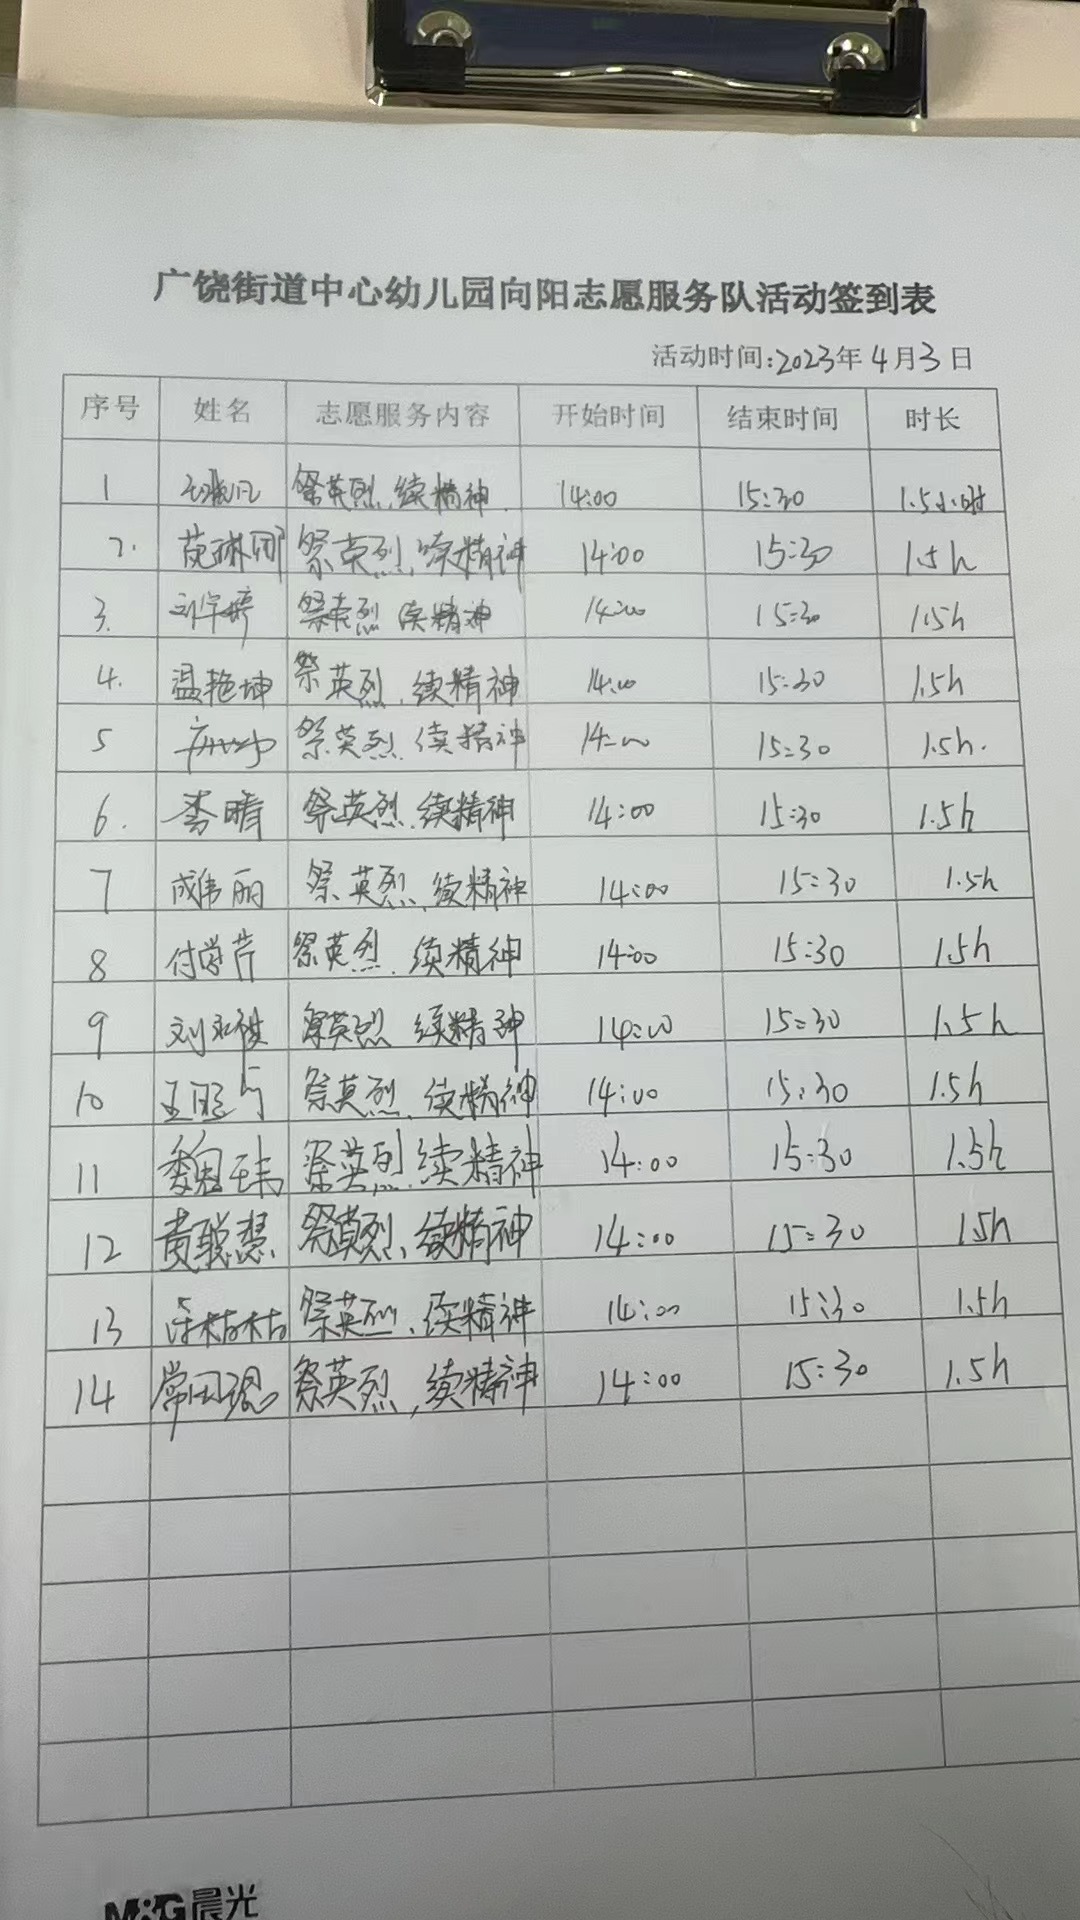 广饶街道中心幼儿园向阳志愿服务队活动签到表
活动时间:2023年4月3日
序号 姓名 志愿服务内容 开始时间 结束时间 时长
1 祭英烈,续精神. 14:00 15:30 1.5小时
2. 范琳娜 祭英烈,续精神 14:00 15:30 1.5h
3. 刘学婷 祭英烈 续精神 14:00 15:30 1.5h
4. 温艳坤 祭英烈,续精神 14:00 15:30 1.5h
5 祭英烈.续精神 14:00 15:30 1.5h.
6. 李晴 祭英烈.续精神 14:00 15:30 1.5h
7 成伟丽 祭英烈、续精神 14:00 15:30 1.5h
8 付学芹 祭英烈.续精神 14:00 15:30 1.5h
9 刘 祭英烈 续精神 14:00 15:30 1.5h
10 王 祭英烈.续精神 14:00 15:30 1.5h
11 魏玮 祭英烈.续精神 14:00 15:30 1.5h
12 黄聪慧 祭英烈、续精神 14:00 15:30 1.5h
13 祭英烈、续精神 14:00 15:30 1.5h
14 常 祭英烈,续精神 14:00 15:30 1.5h
M&G晨光